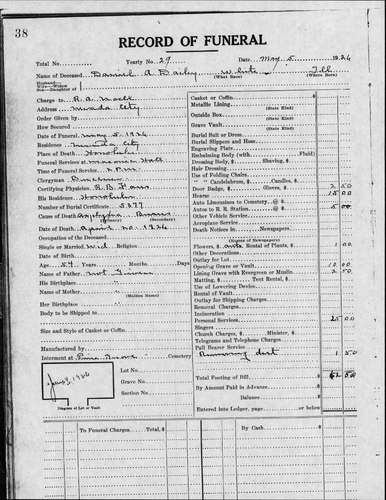 38
RECORD OF FUNERAL
Total No. Yearly No. 29 Date May 5 1926
Name of Deceased Daniel A. White Ill
(What Race) (Where Born)
Husband—
Wife—Widow
Son—Daughter of
Charge to R. A.
Address Nevada City
Order Given by
How Secured
Date of Funeral May 5, 1926
Residence Nevada City
Place of Death Honolulu
Funeral Services at Masonic Hall
Time of Funeral Service 2 P.M.
Clergyman
Certifying Physician R. B.
His Residence Honolulu
Number of Burial Certificate 5977
Cause of Death Asphyxia
(Primary) (Secondary)
Date of Death April 20, 1926
Occupation of the Deceased
Single or Married Wid Religion
(Days)
Age 59 Years Months Days
Name of Father Not Given
His Birthplace "
Name of Mother "
(Maiden Name)
Her Birthplace "
Body to be Shipped to
Size and Style of Casket or Coffin
Manufactured by
Interment at Pine Grove Cemetery
Lot No.
Grave No.
Section No.
Diagram of Lot or Vault
Casket or Coffin
Metallic Lining
(State Kind)
Outside Box
(State Kind)
Grave Vault
(State Kind)
Burial Suit or Dress
Burial Slippers and Hose
Engraving Plate
Embalming Body (with Fluid)
Dressing Body, $ Shaving, $
Hair Dressing
Use of Folding Chairs
" " Candelabrum, $ Candles, $
Door Badge, $ Gloves, $ 2 50
Hearse 15 00
Auto Limousines to Cemetery @ $
Autos to R. R. Station @ $ 5 00
Other Vehicle Service
Aeroplane Service
Death Notices in Newspapers
(Names of Newspapers)
Flowers, $ Rental of Plants, $ 1 00
Other Decorations
Outlay for Lot
Opening Grave or Vault 10 00
Lining Grave with Evergreen or Muslin 2 50
Matting, $ Tent Rental, $
Use of Lowering Device
Rental of Vault
Outlay for Shipping Charges
Removal Charges
Incineration
Personal Services 25 00
Singers
Church Charges, $ Minister, $
Telegrams and Telephone Charges
Pall Bearer Service
1 50
Total Footing of Bill $62 50
By Amount Paid in Advance
Balance
Entered into Ledger, page or below
To Funeral Charges Total By Cash